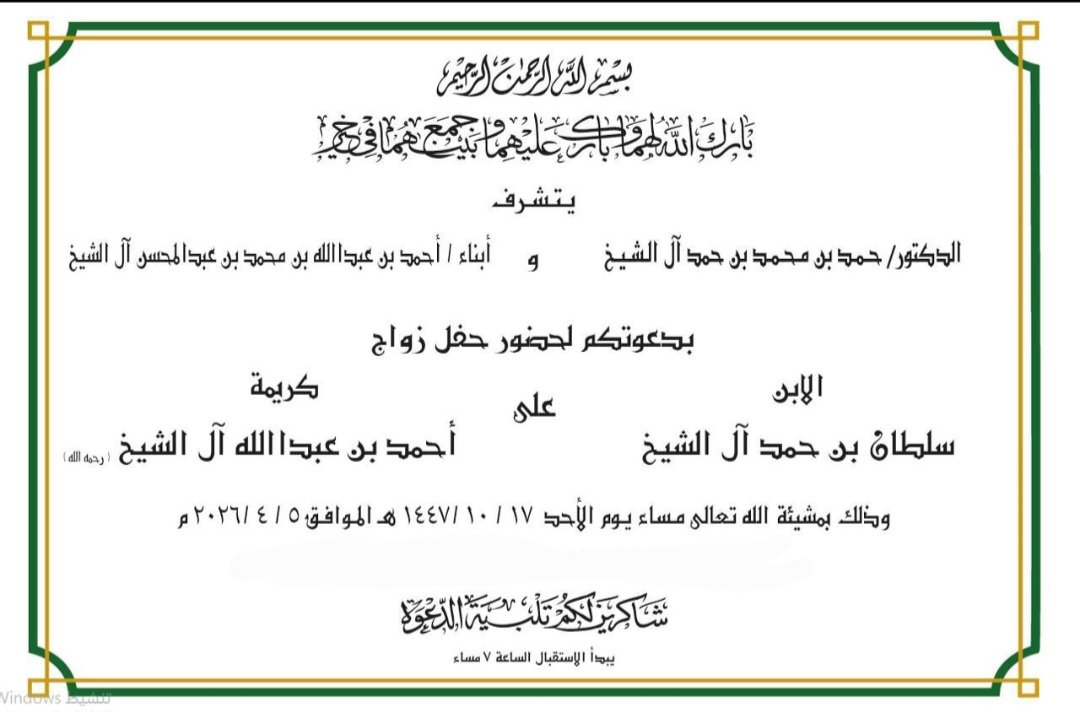 بسم الله الرحمن الرحيم
بارك الله لهما وبارك عليهما وجمع بينهما في خير
يتشرف
الدكتور/ حمد بن محمد بن حمد آل الشيخ و أبناء / أحمد بن عبدالله بن محمد بن عبدالمحسن آل الشيخ
بدعوتكم لحضور حفل زواج
الابن على كريمة
سلطان بن حمد آل الشيخ أحمد بن عبدالله آل الشيخ (رحمه الله)
وذلك بمشيئة الله تعالى مساء يوم الأحد ١٧ / ١٠ /١٤٤٧ هـ الموافق ٥ / ٤ /٢٠٢٦ م
شاكرين لكم تلبية الدعوة
يبدأ الإستقبال الساعة ٧ مساء
تنشيط Windows